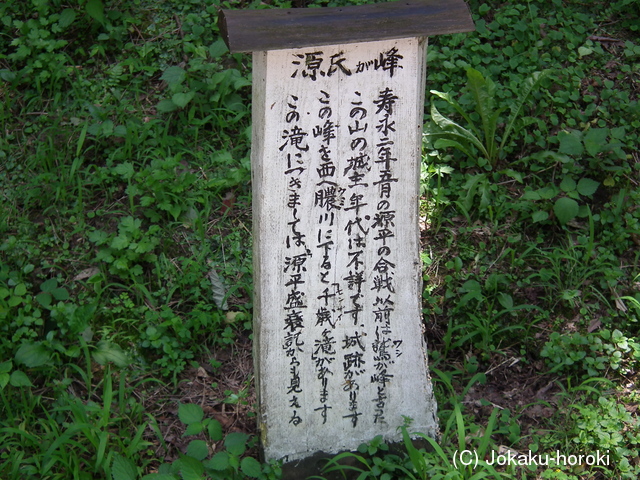 源氏が峰
寿永二年五月の源平の合戦以前は鷲が峰と云った
この山の城主年代は不詳です、城跡があります
この峰を西へ膿川に下ると千歳ヶ滝があります
この滝につきましては、源平盛衰記からも見える
(C) Jokaku-horoki